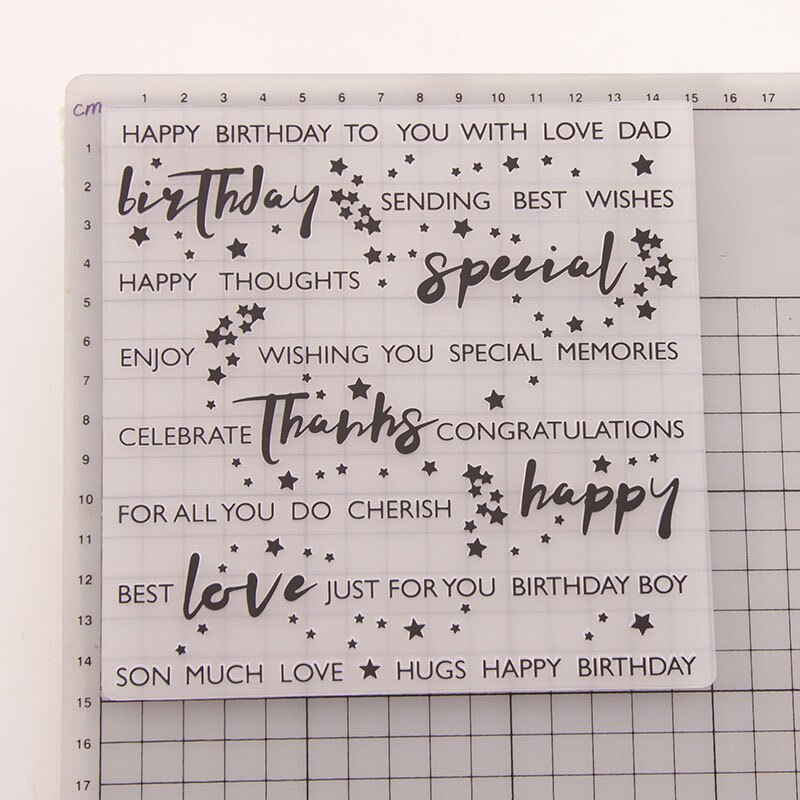 cm 1 2 3 4 5 6 7 8 9 10 11 12 13 14 15 16 17
HAPPY BIRTHDAY TO YOU WITH LOVE DAD
birthday SENDING BEST WISHES
HAPPY THOUGHTS special
ENJOY WISHING YOU SPECIAL MEMORIES
CELEBRATE Thanks CONGRATULATIONS
FOR ALL YOU DO CHERISH happy
BEST love JUST FOR YOU BIRTHDAY BOY
SON MUCH LOVE HUGS HAPPY BIRTHDAY
1
2
3
4
5
6
7
8
9
10
11
12
13
14
15
16
17